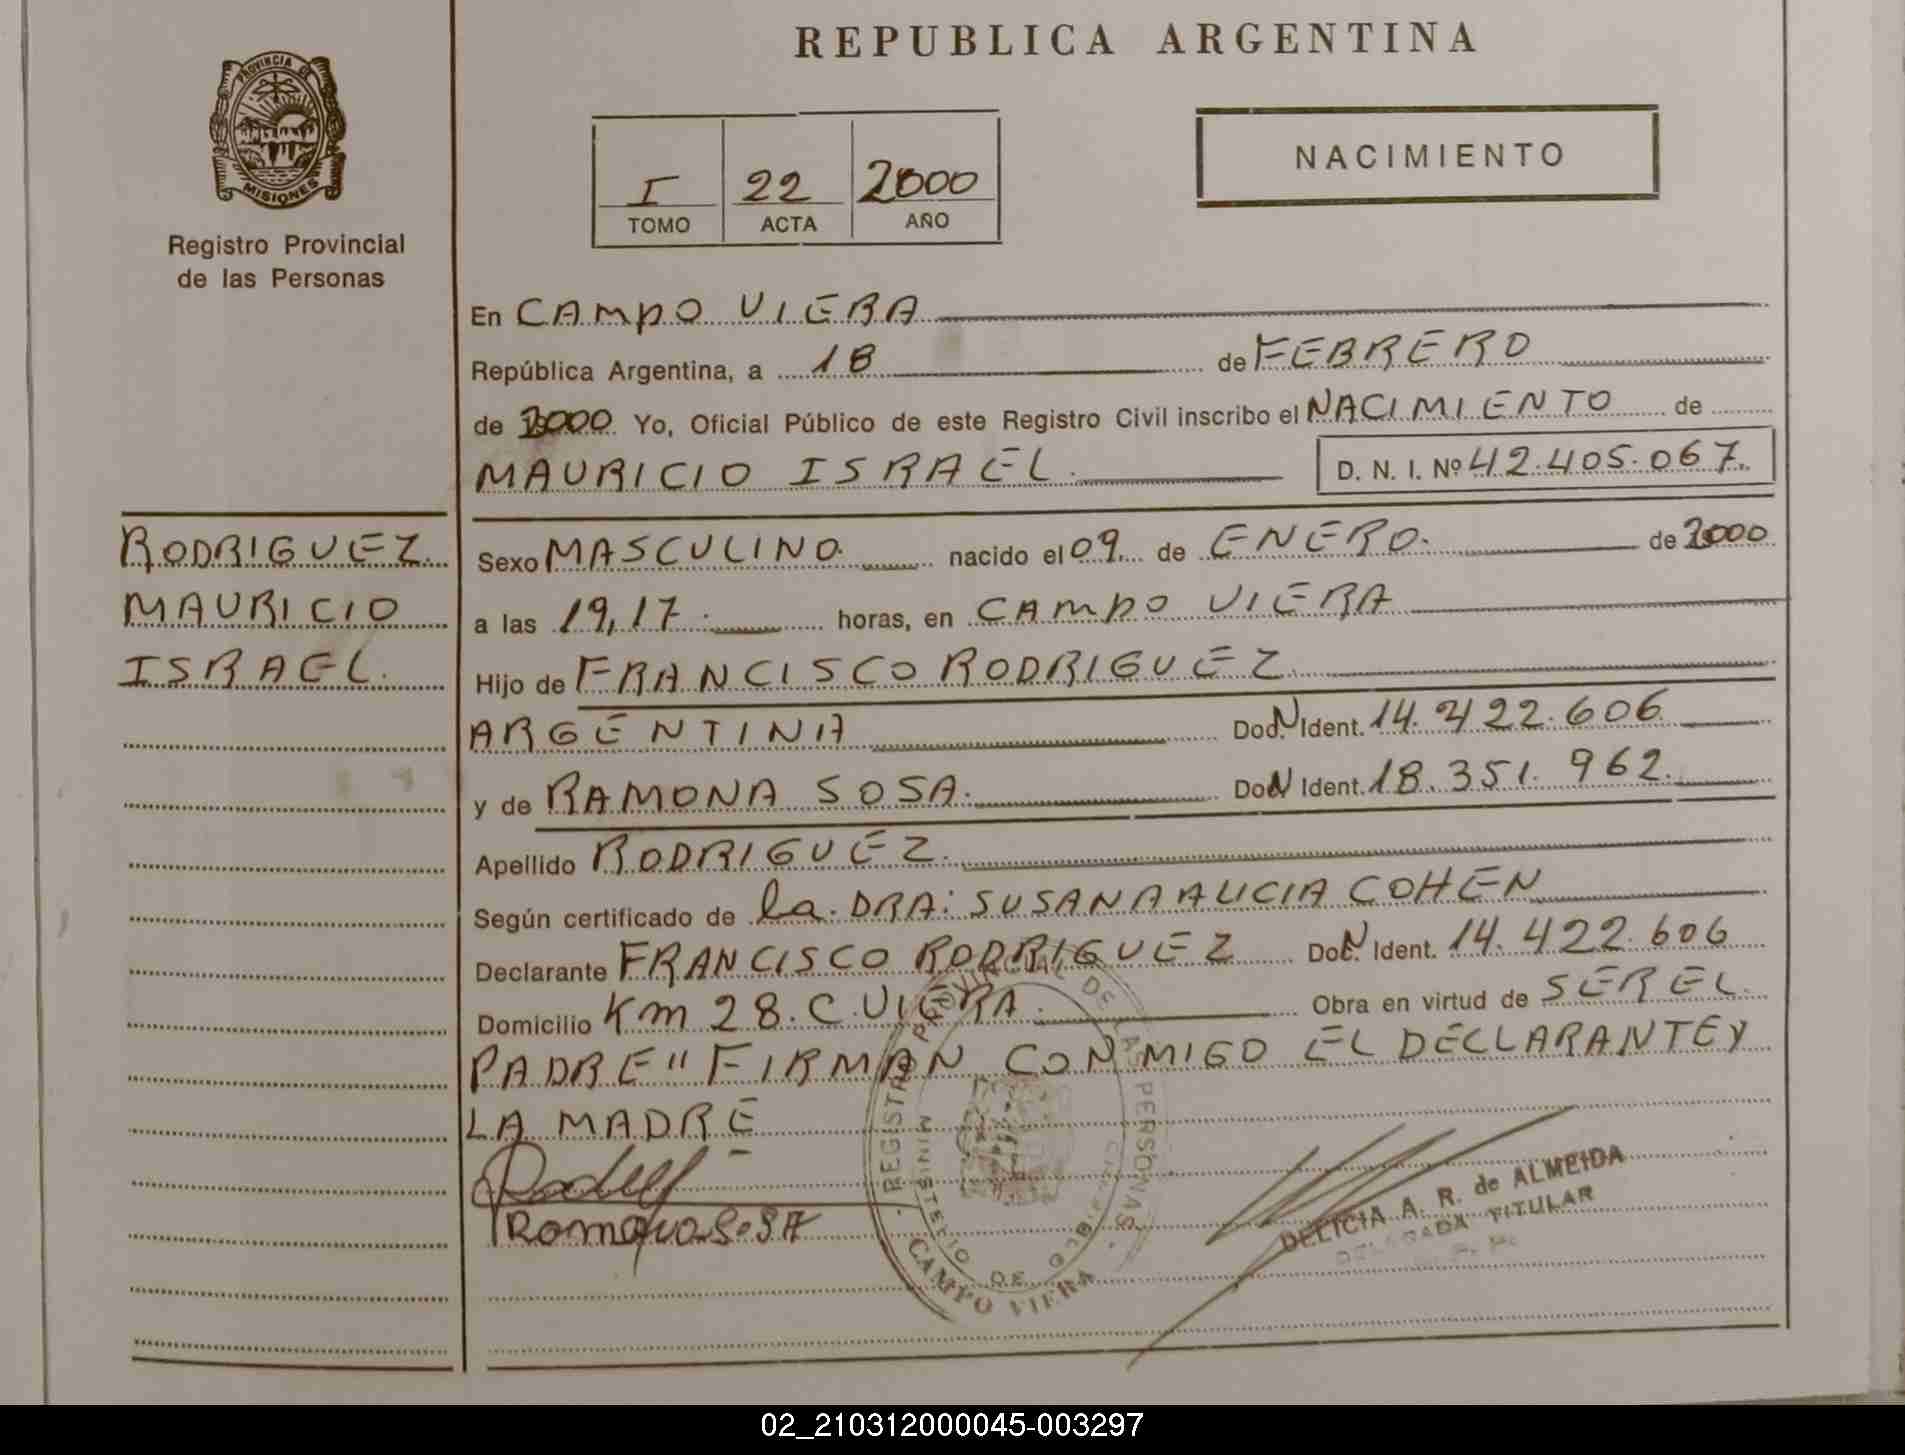 REPUBLICA ARGENTINA
PROVINCIA DE
MISIONES
Registro Provincial
de las Personas
I 22 2000
TOMO ACTA AÑO
NACIMIENTO
En CAMPO VIERA
República Argentina, a 18 de FEBRERO
de 2000 Yo, Oficial Público de este Registro Civil inscribo el NACIMIENTO de
MAURICIO ISRAEL. D. N. I. Nº 42.405.067.
RODRIGUEZ.
MAURICIO
ISRAEL.
Sexo MASCULINO. nacido el 09. de ENERO. de 2000
a las 19,17. horas, en CAMPO VIERA
Hijo de FRANCISCO RODRIGUEZ.
ARGENTINA Doc. N Ident. 14.422.606
y de RAMONA SOSA. Doc. N Ident. 18.351.962.
Apellido RODRIGUEZ.
Según certificado de la. DRA: SUSANA ALICIA COHEN
Declarante FRANCISCO RODRIGUEZ Doc. N Ident. 14.422.606
Domicilio Km 28. C. VIERA. Obra en virtud de SER EL
PADRE" FIRMAN CONMIGO EL DECLARANTE Y
LA MADRE
Ramona Sosa
REGISTRO PROVINCIAL DE LAS PERSONAS
MINISTERIO DE GOBIERNO
CAMPO VIERA
DELICIA A. R. de ALMEIDA
DELEGADA TITULAR
02_210312000045-003297